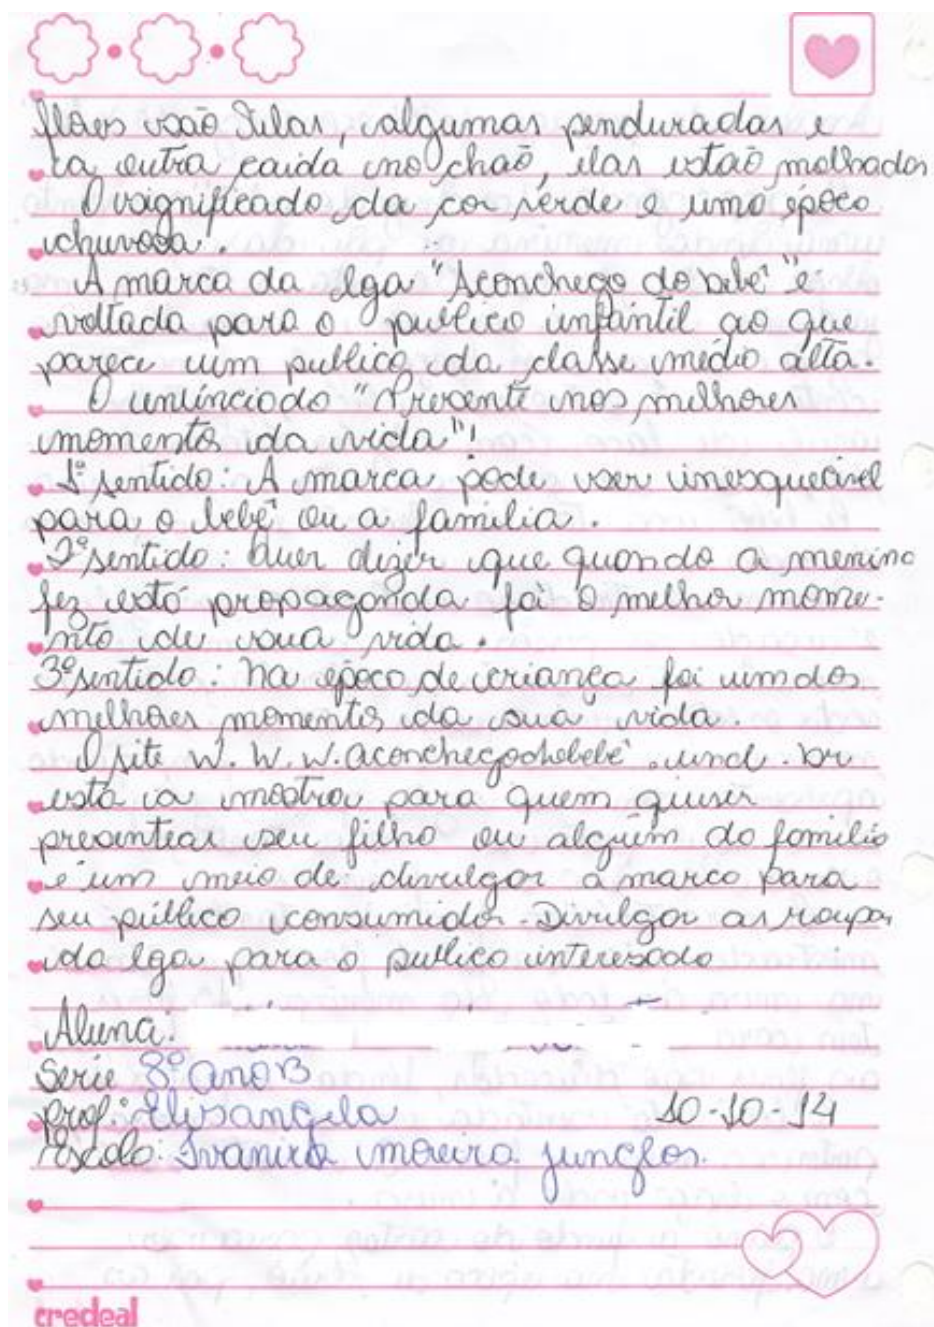 flores são lilas, algumas penduradas e
a outra caida no chaõ, elas estaõ molhadas
O significado da cor verde e uma época
chuvosa.
A marca da lga "Aconchego do bebê" é
voltada para o publico infantil ao que
parece um publico da classe média alta.
O enúnciado "Presente nos melhores
momentos da vida"!
1º sentido: A marca pode ser inesquecível
para o bebê ou a família.
2º sentido: Quer dizer que quando a menina
fez está propaganda foi o melhor mome-
nto de sua vida.
3º sentido: Na época de criança foi um dos
melhores momentos da sua vida.
O site W. W. W. aconchegodobebê .ind. br
está a mostra para quem quiser
presentear seu filho ou alguém da familia
é um meio de divulgar a marca para
seu público consumidor. Divulgar as roupas
da lga para o publico interessado
Aluna:
Serie 8º ano B
prof: Elisangela 10-10-14
Escola: Ivanira moreira junglos.
credeal